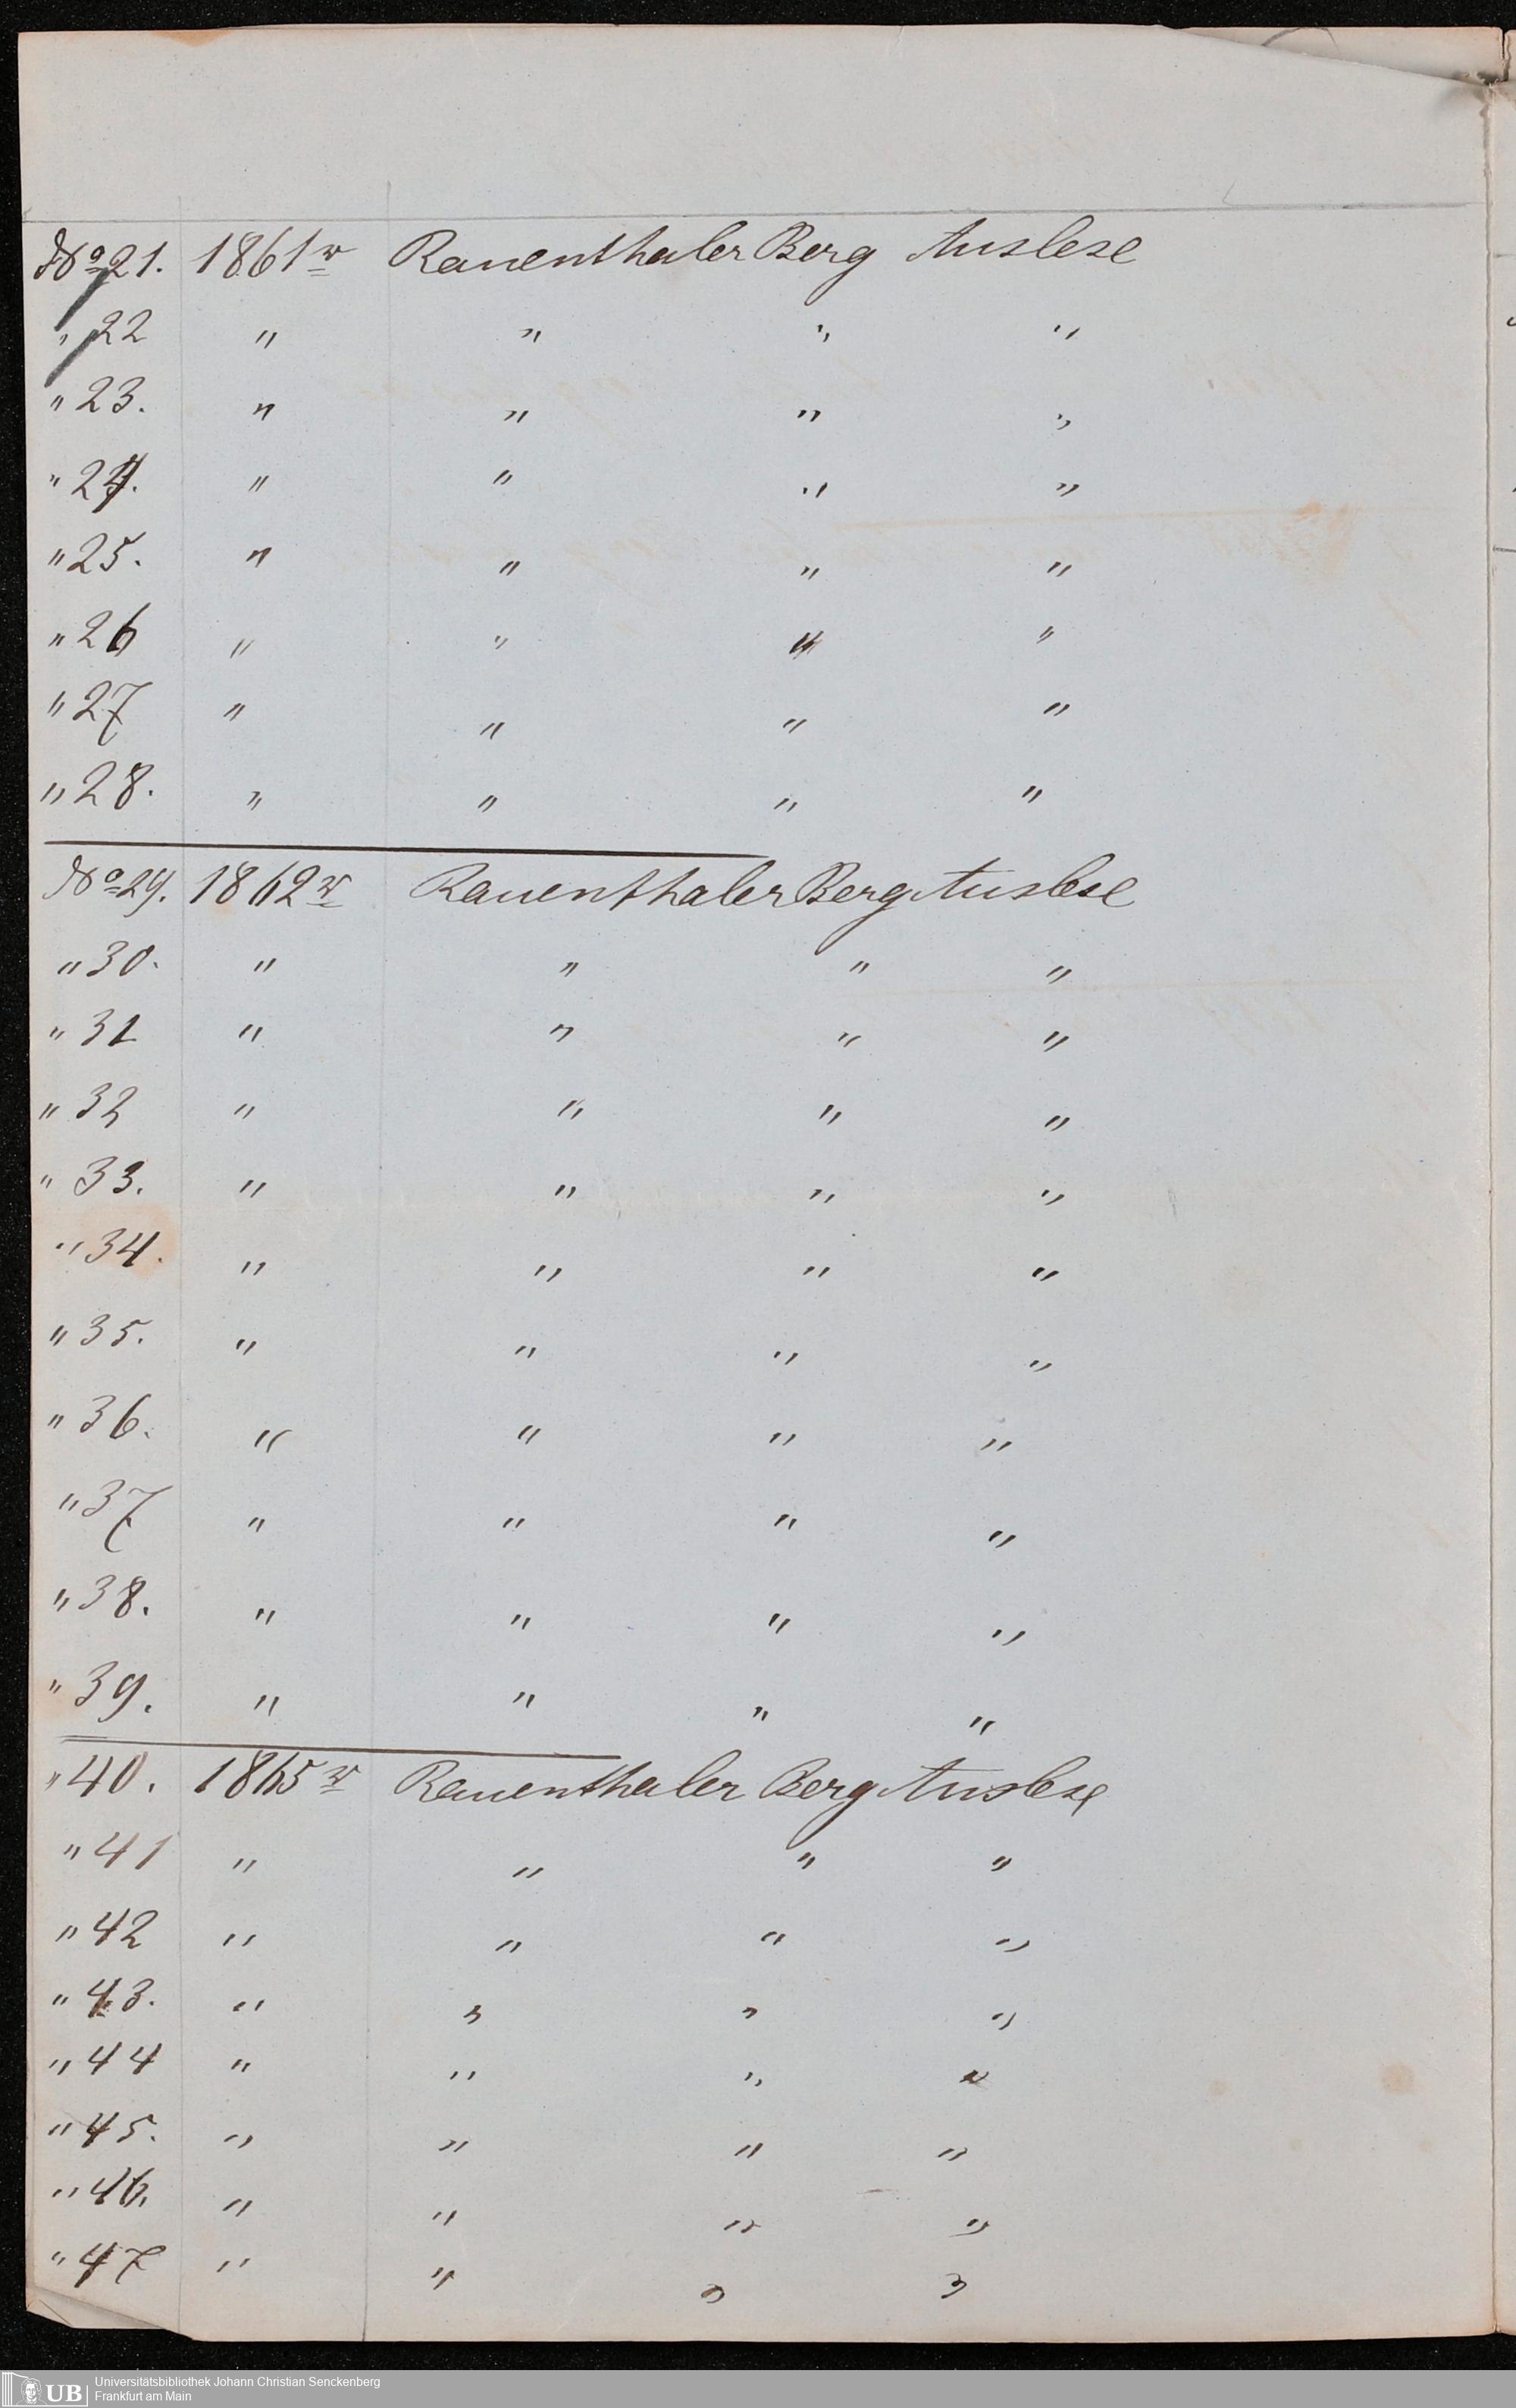 No 21. 1861r Rauenthaler Berg Auslese
" 22 " " " "
" 23. " " " "
" 24. " " " "
" 25. " " " "
" 26 " " " "
" 27 " " " "
" 28. " " " "
No 29. 1862r Rauenthaler Berg Auslese
" 30. " " " "
" 31 " " " "
" 32 " " " "
" 33. " " " "
" 34. " " " "
" 35. " " " "
" 36. " " " "
" 37 " " " "
" 38. " " " "
" 39. " " " "
" 40. 1865r Rauenthaler Berg Auslese
" 41 " " " "
" 42 " " " "
" 43. " " " "
" 44 " " " "
" 45. " " " "
" 46. " " " "
" 47 " " " "
UB Universitätsbibliothek Johann Christian Senckenberg
Frankfurt am Main